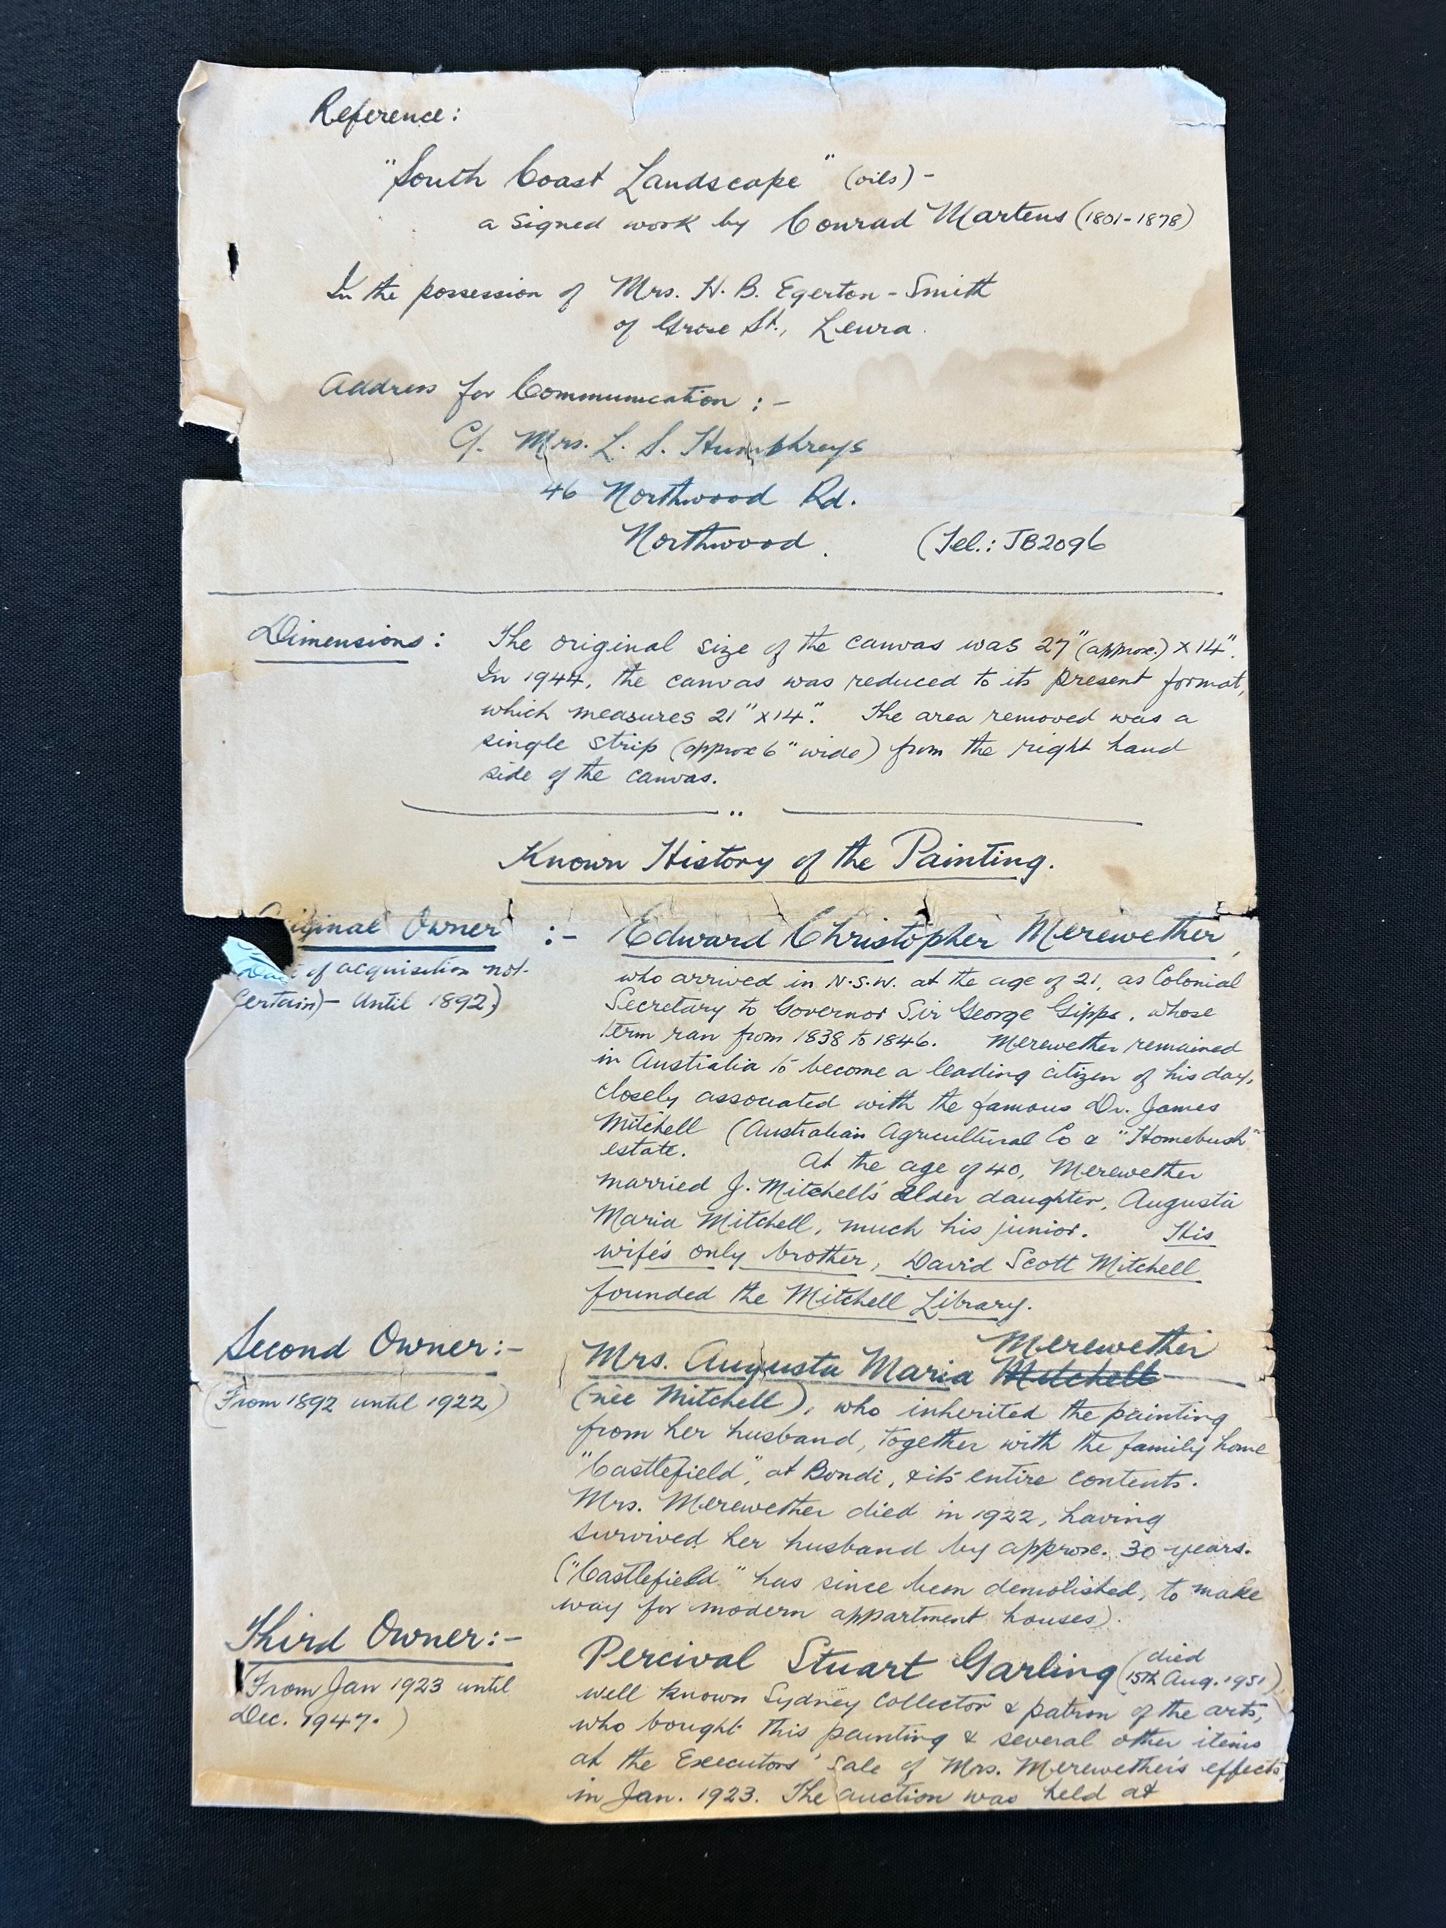 Reference:
"South Coast Landscape" (oils) -
a signed work by Conrad Martens (1801-1878)
In the possession of Mrs. H. B. Egerton-Smith
of Grose St., Leura.
Address for Communication :-
C/. Mrs. L. S. Humphreys
46 Northwood Rd.
Northwood. (Tel.: JB2096
Dimensions: The original size of the canvas was 27" (approx.) x 14".
In 1944, the canvas was reduced to its present format,
which measures 21" x 14". The area removed was a
single strip (approx 6" wide) from the right hand
side of the canvas.
Known History of the Painting.
Original Owner :- Edward Christopher Merewether,
(Date of acquisition not
certain) - Until 1892)
who arrived in N.S.W. at the age of 21, as Colonial
Secretary to Governor Sir George Gipps, whose
term ran from 1838 to 1846. Merewether remained
in Australia to become a leading citizen of his day,
closely associated with the famous Dr. James
Mitchell (Australian Agricultural Co & "Homebush"
estate. At the age of 40, Merewether
married J. Mitchell's elder daughter, Augusta
Maria Mitchell, much his junior. His
wife's only brother, David Scott Mitchell
founded the Mitchell Library.
Second Owner:-
(From 1892 until 1922)
Merewether
Mrs. Augusta Maria Mitchell
(née Mitchell), who inherited the painting
from her husband, together with the family home
"Castlefield", at Bondi, & its entire contents.
Mrs. Merewether died in 1922, having
survived her husband by approx. 30 years.
("Castlefield" has since been demolished, to make
way for modern appartment houses).
Third Owner:-
(From Jan 1923 until
Dec. 1947.)
Percival Stuart Garling (died 15th Aug. 1951),
well known Sydney Collector & patron of the arts,
who bought this painting & several other items
at the Executors' Sale of Mrs. Merewether's effects,
in Jan. 1923. The auction was held at